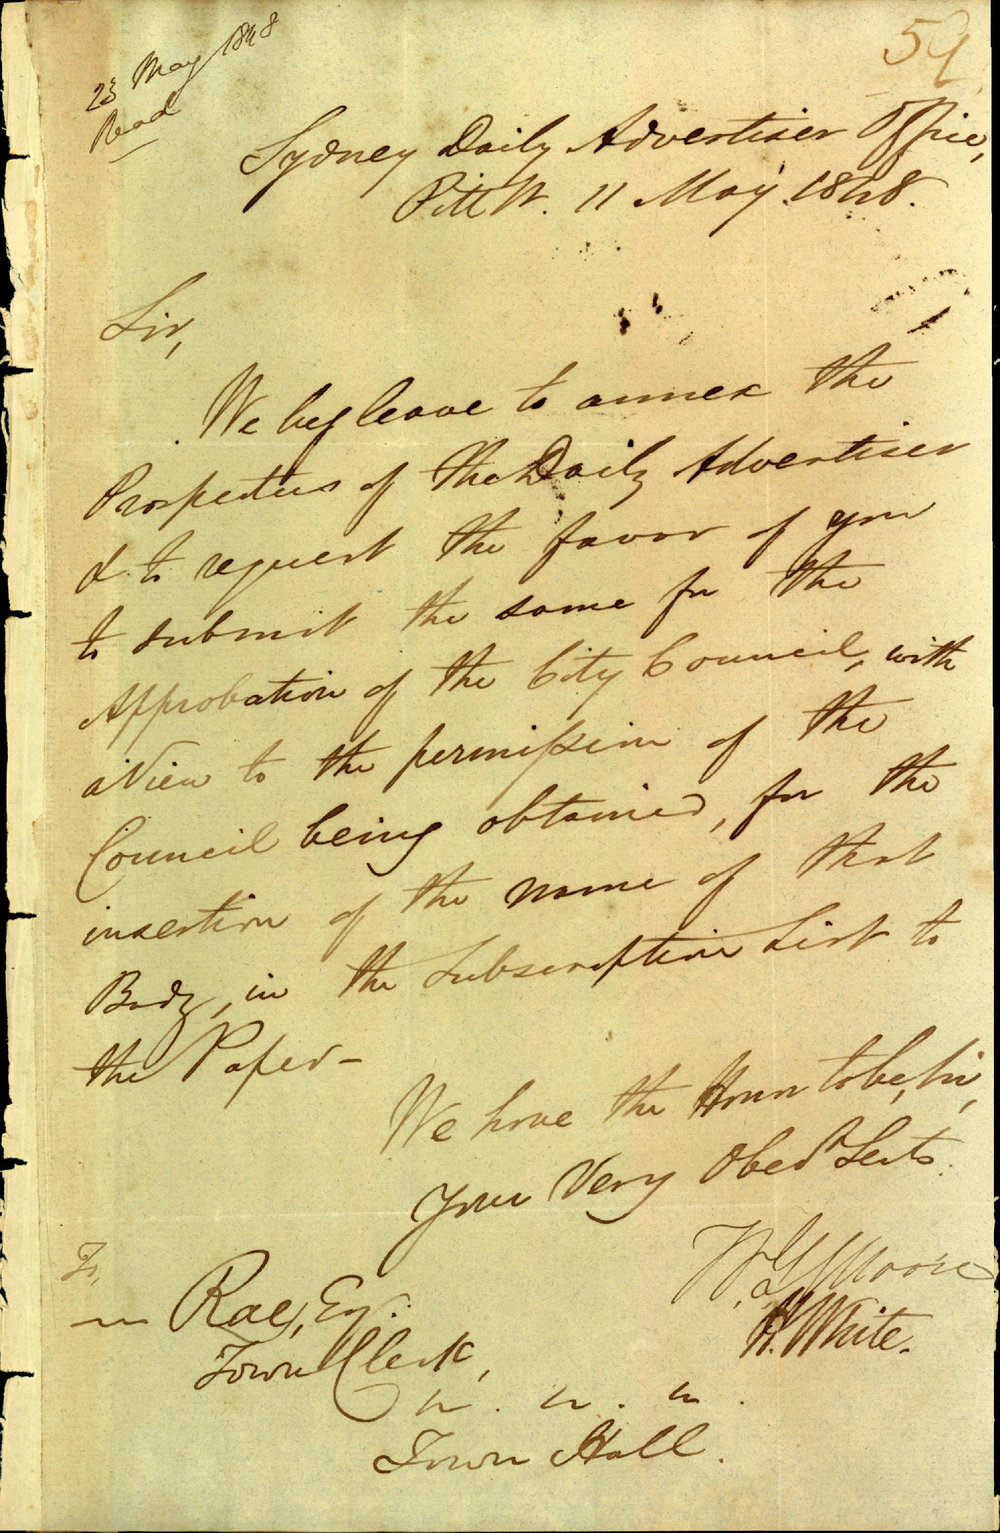 59
23 May 1848
Read
Sydney Daily Advertiser Office,
Pitt St. 11 May 1848.
Sir,
We beg leave to annex the
Prospectus of the Daily Advertiser
& to request the favor of your
to submit the same for the
Approbation of the City Council, with
a View to the permission of the
Council being obtained, for the
insertion of the name of that
Body, in the Subscription List to
the Paper—
We have the Honor to be, Sir,
Your Very Obedt Servts
W. G. Moore
H. White.
To,
— Rae, Esq.
Town Clerk,
Town Hall.